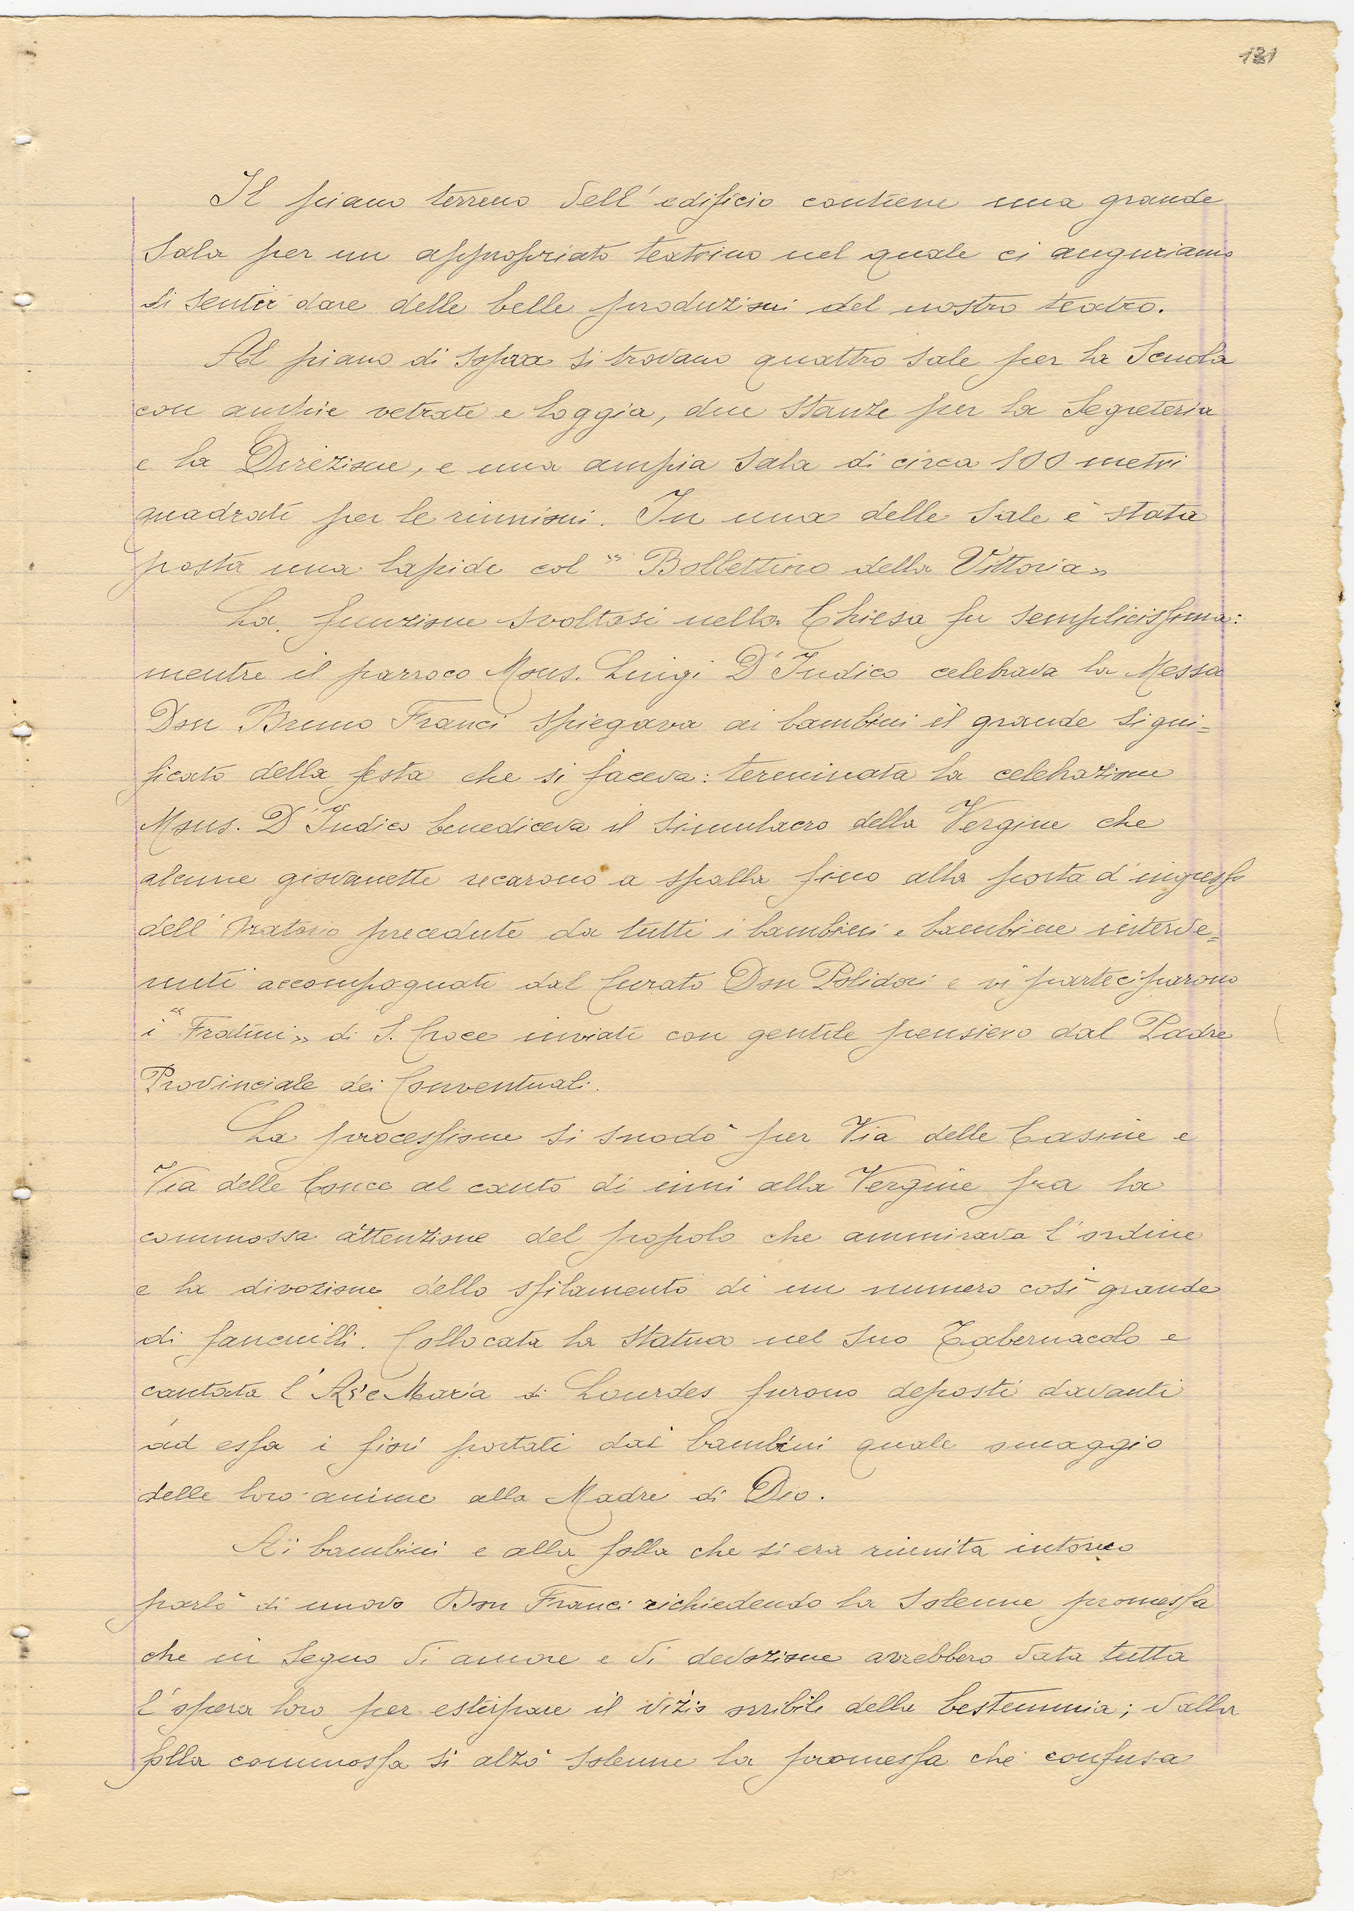 131
Il piano terreno dell'edificio contiene una grande
sala per un appropriato teatrino nel quale ci auguriamo
di sentir dare delle belle produzioni del nostro teatro.
Al piano di sopra si trovano quattro sale per la Scuola
con ampie vetrate e loggia, due stanze per la Segreteria
e la Direzione, e una ampia sala di circa 100 metri
quadrati per le riunioni. In una delle sale è stata
posta una lapide col "Bollettino della Vittoria"
La funzione svoltasi nella Chiesa fu semplicissima:
mentre il parroco Mons. Luigi D'Indico celebrava la Messa
Don Bruno Franci spiegava ai bambini il grande signi=
ficato della festa che si faceva: terminata la celebrazione
Mons. D'Indico benediceva il simulacro della Vergine che
alcune giovanette recarono a spalla fino alla porta d'ingresso
dell'Oratorio precedute da tutti i bambini e bambine interve=
nuti accompagnati dal Curato Don Polidori e vi parteciparono
i "Fratini" di S. Croce inviati con gentile pensiero dal Padre
Provinciale dei Conventuali.
La processione si snodò per Via delle Casine e
Via delle Conce al canto di inni alla Vergine fra la
commossa attenzione del popolo che ammirava l'ordine
e la divozione dello sfilamento di un numero così grande
di fanciulli. Collocata la statua nel suo Tabernacolo e
cantata l'Ave Maria di Lourdes furono deposti davanti
ad essa i fiori portati dai bambini quale omaggio
delle loro anime alla Madre di Dio.
Ai bambini e alla folla che si era riunita intorno
parlò di nuovo Don Franci richiedendo la solenne promessa
che in segno di amore e di devozione avrebbero data tutta
l'opera loro per estirpare il vizio orribile della bestemmia; dalla
folla commossa si alzò solenne la promessa che confusa